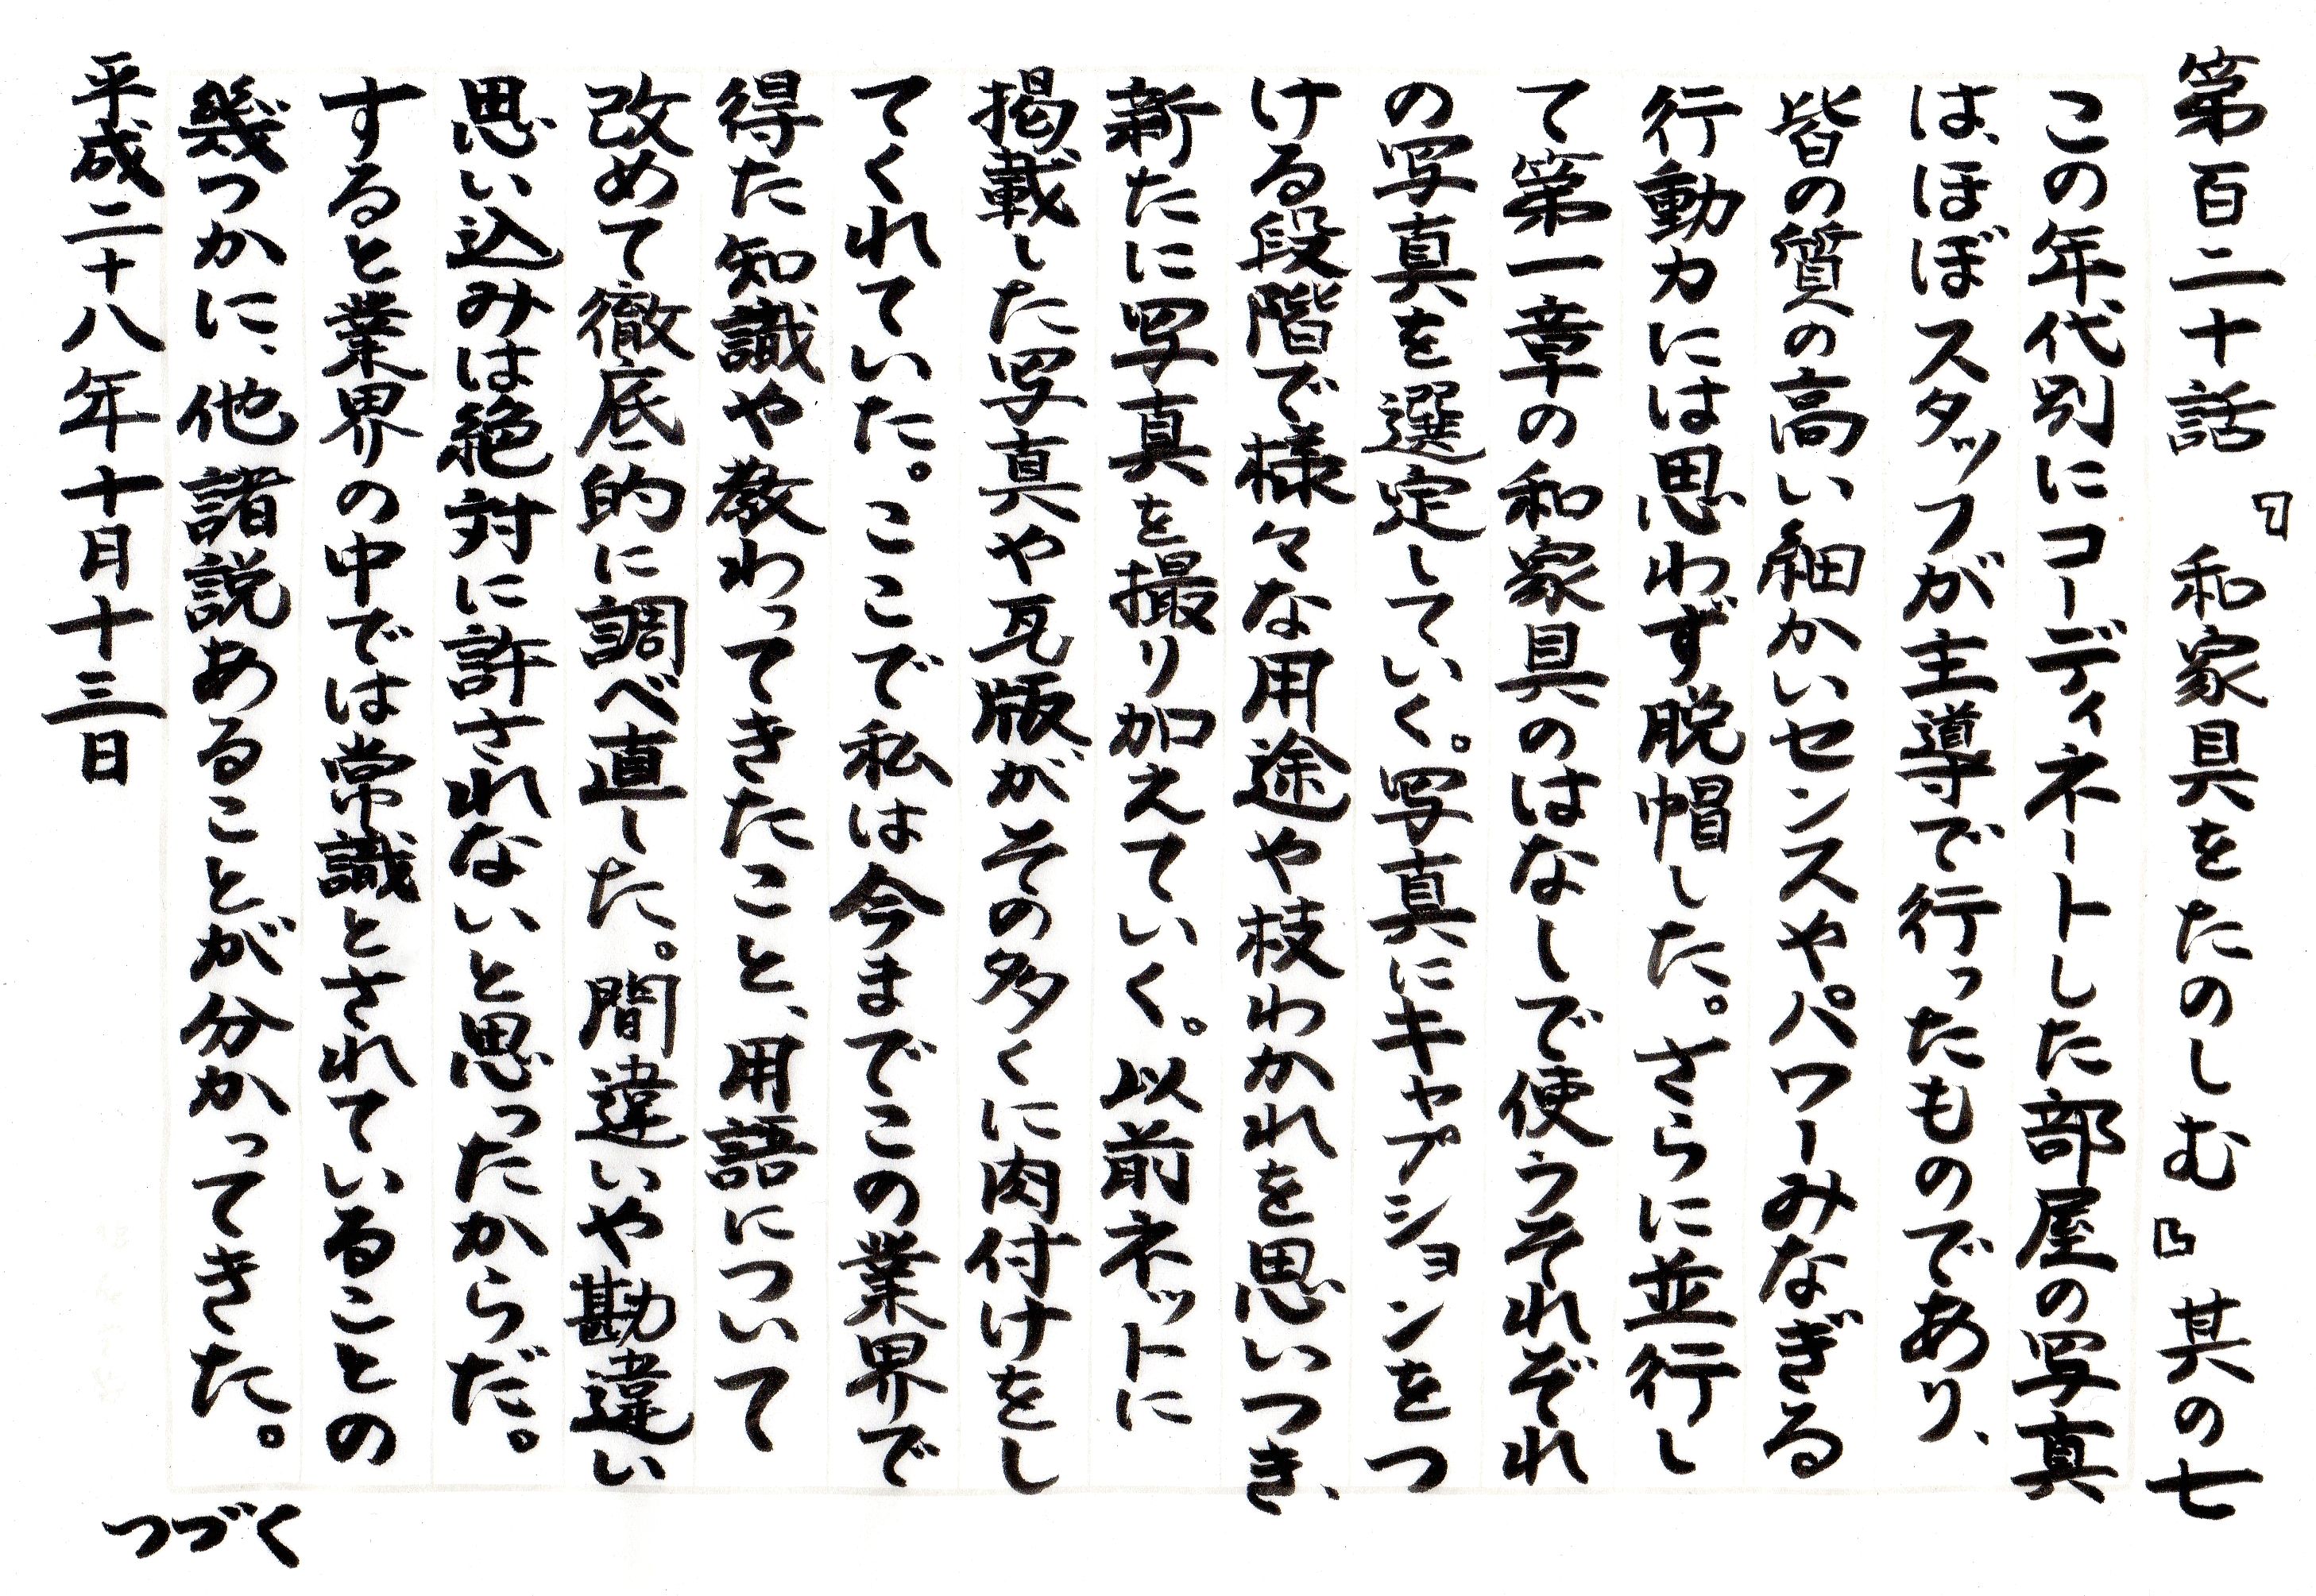 第百二十話 『和家具をたのしむ』其の七
この年代別にコーディネートした部屋の写真
は、ほぼスタッフが主導で行ったものであり、
皆の質の高い細かいセンスやパワーみなぎる
行動力には思わず脱帽した。さらに並行し
て第一章の和家具のはなしで使うそれぞれ
の写真を選定していく。写真にキャプションをつ
ける段階で様々な用途や枝わかれを思いつき、
新たに写真を撮り加えていく。以前ネットに
掲載した写真や瓦版がその多くに肉付けをし
てくれていた。ここで私は今までこの業界で
得た知識や教わってきたこと、用語について
改めて徹底的に調べ直した。間違いや勘違い
思い込みは絶対に許されないと思ったからだ。
すると業界の中では常識とされていることの
幾つかに、他諸説あることが分かってきた。
平成二十八年十月十三日
つづく